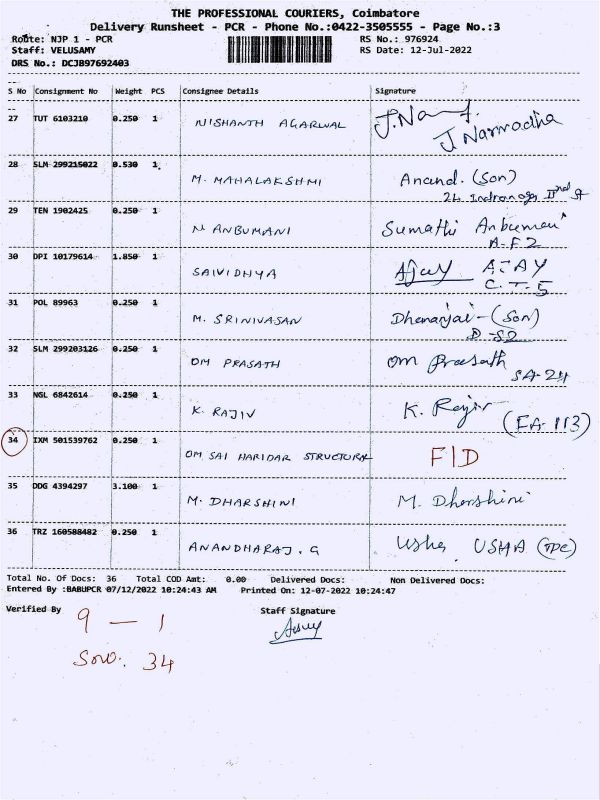 THE PROFESSIONAL COURIERS, Coimbatore
Delivery Runsheet - PCR - Phone No.:0422-3505555 - Page No.:3
Route: NJP 1 - PCR RS No.: 976924
Staff: VELUSAMY RS Date: 12-Jul-2022
DRS No.: DCJB97692403
S No Consignment No Weight PCS Consignee Details Signature
27 TUT 6103210 0.250 1 NISHANTH AGARWAL J.Na
J Narmadha
28 SLM 299215022 0.530 1 M. MAHALAKSHMI Anand. (Son)
24 Indranagar IInd St
29 TEN 1902425 0.250 1 N ANBUMANI Sumathi Anbumani
A-F2
30 DPI 10179614 1.850 1 SAIVIDHYA Ajay AJAY
C.T-5
31 POL 89963 0.250 1 M. SRINIVASAN Dhananjai-(Son)
D-S2
32 SLM 299203126 0.250 1 OM PRASATH Om Prasath
SA-24
33 NGL 6842614 0.250 1 K. RAJIV K. Rajiv
(EA-113)
34 IXM 501539762 0.250 1 OM SAI HARIDAR STRUCTURAL F|D
35 DDG 4394297 3.100 1 M. DHARSHINI M. Dharshini
36 TRZ 160588482 0.250 1 ANANDHARAJ. G Usha USHA (TPC)
Total No. Of Docs: 36 Total COD Amt: 0.00 Delivered Docs: Non Delivered Docs:
Entered By :BABUPCR 07/12/2022 10:24:43 AM Printed On: 12-07-2022 10:24:47
Verified By Staff Signature
9 — 1
Sno. 34